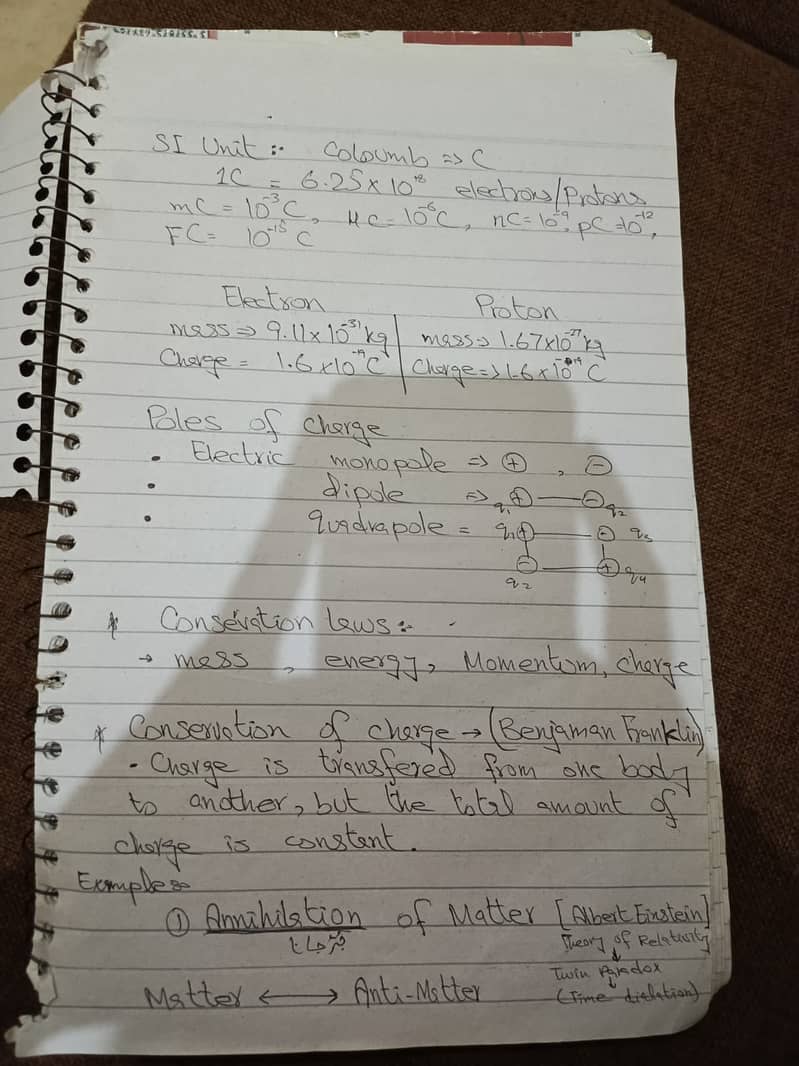 SI Unit :- Coloumb => C
1C = 6.25 x 10^18 electrons/Protons
mC = 10^-3 C, μC = 10^-6 C, nC = 10^-9, pC = 10^-12,
FC = 10^-15 C
Electron Proton
mass => 9.11 x 10^-31 kg mass => 1.67 x 10^-27 kg
Charge = 1.6 x 10^-19 C Charge => 1.6 x 10^-19 C
Poles of charge
• Electric monopole => ⊕ , ⊖
• dipole => q1 ⊕ — ⊖ q2
• quadrapole = q1 ⊕ — ⊖ q3
⊖ — ⊕ q4
q2
* Conservation laws :-
→ mass , energy, Momentum, charge
* Conservation of charge → (Benjaman Franklin)
• Charge is transfered from one body
to another, but the total amount of
charge is constant.
Example :-
① Annihilation of Matter [Albert Einstein]
Theory of Relativity
↓
Twin Paradox
↓
Matter ⟷ Anti-Matter (Time dielation)